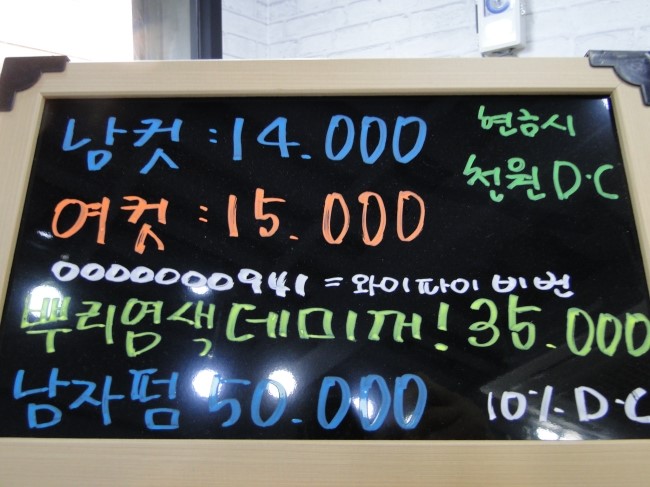 남컷 : 14.000
현금시
천원 D·C
여컷 : 15.000
0000000941 = 와이파이 비번
뿌리염색 데미꺼! 35.000
남자펌 50.000
10% D·C